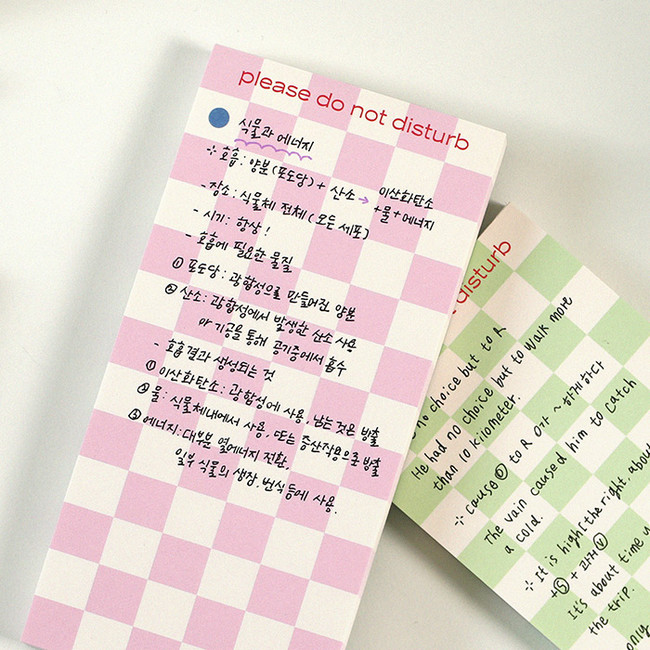 please do not disturb
식물과 에너지
⊹ 호흡: 양분(포도당) + 산소 → 이산화탄소
+물+에너지
- 장소: 식물체 전체(모든 세포)
- 시기: 항상!
- 호흡에 필요한 물질
① 포도당: 광합성으로 만들어진 양분
② 산소: 광합성에서 발생한 산소 사용
or 기공을 통해 공기중에서 흡수
- 호흡 결과 생성되는 것
① 이산화탄소: 광합성에 사용, 남는것은 방출
② 물: 식물체내에서 사용, 또는 증산작용으로 방출
③ 에너지: 대부분 열에너지 전환,
일부 식물의 생장, 번식 등에 사용.
disturb
no choice but to R
He had no choice but to walk more
than 10 kilometer.
⊹ cause ⓞ to R O가 ~하게하다
The vain caused him to catch
a cold.
⊹ It is high(the right, about
+ⓢ + 과거ⓥ
It's about time
the trip.
only